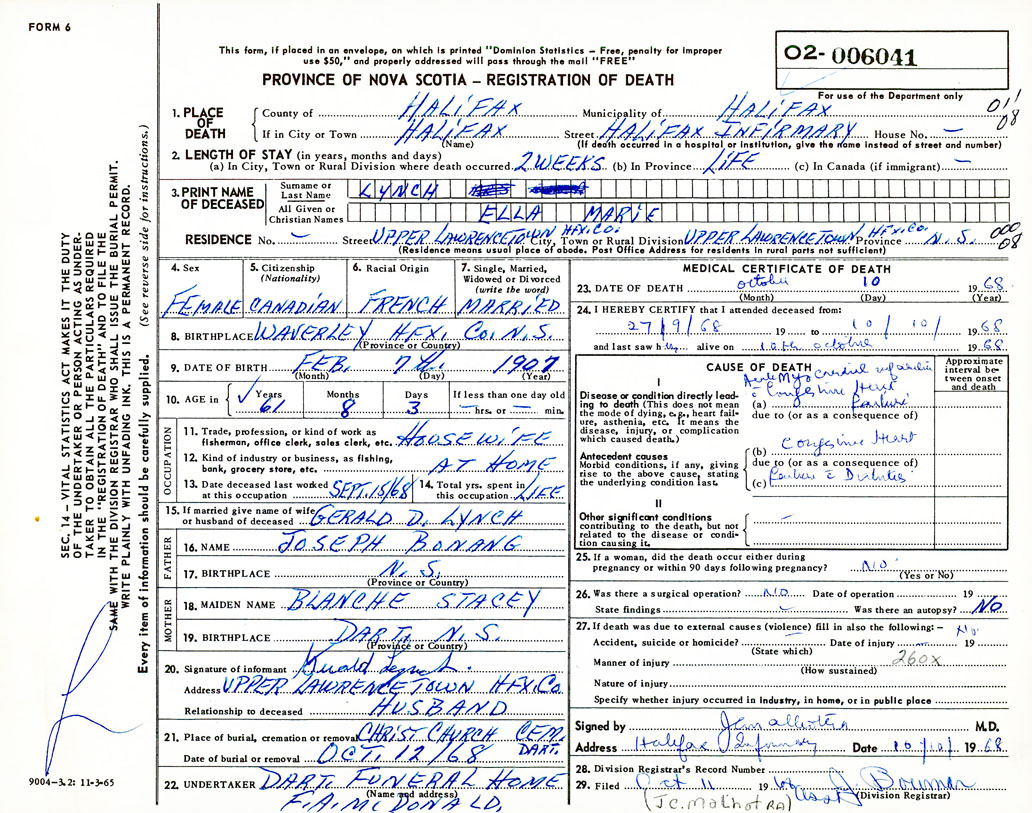 FORM 6
This form, if placed in an envelope, on which is printed "Dominion Statistics – Free, penalty for improper
use $50," and properly addressed will pass through the mail "FREE"
PROVINCE OF NOVA SCOTIA – REGISTRATION OF DEATH
02-006041
For use of the Department only
011
08
1. PLACE OF DEATH
County of HALIFAX Municipality of HALIFAX
If in City or Town HALIFAX Street HALIFAX INFIRMARY House No. –
(Name) (If death occurred in a hospital or institution, give the name instead of street and number)
2. LENGTH OF STAY (in years, months and days)
(a) In City, Town or Rural Division where death occurred 2 WEEKS (b) In Province LIFE (c) In Canada (if immigrant) –
3. PRINT NAME OF DECEASED
Surname or Last Name LYNCH
All Given or Christian Names ELLA MARIE
RESIDENCE No. – Street UPPER LAWRENCETOWN HFX. CO. City, Town or Rural Division UPPER LAWRENCETOWN HFX. CO. Province N.S.
(Residence means usual place of abode. Post Office Address for residents in rural parts not sufficient)
000
08
4. Sex FEMALE
5. Citizenship (Nationality) CANADIAN
6. Racial Origin FRENCH
7. Single, Married, Widowed or Divorced (write the word) MARRIED
8. BIRTHPLACE WAVERLEY HFX. Co. N.S.
(Province or Country)
9. DATE OF BIRTH FEB. 7th. 1907
(Month) (Day) (Year)
10. AGE in Years 61 Months 8 Days 3 If less than one day old – hrs. or – min.
OCCUPATION
11. Trade, profession, or kind of work as fisherman, office clerk, sales clerk, etc. HOUSEWIFE
12. Kind of industry or business, as fishing, bank, grocery store, etc. AT HOME
13. Date deceased last worked at this occupation SEPT. 15/68
14. Total yrs. spent in this occupation LIFE
15. If married give name of wife or husband of deceased GERALD D. LYNCH
FATHER
16. NAME JOSEPH BONANG
17. BIRTHPLACE N.S.
(Province or Country)
MOTHER
18. MAIDEN NAME BLANCHE STACEY
19. BIRTHPLACE DART. N.S.
(Province or Country)
20. Signature of informant Gerald Lynch.
Address UPPER LAWRENCETOWN HFX. Co
Relationship to deceased HUSBAND
21. Place of burial, cremation or removal CHRIST CHURCH CEM. DART.
Date of burial or removal OCT. 12/68
22. UNDERTAKER DART. FUNERAL HOME
(Name and address)
F.A. McDONALD,
MEDICAL CERTIFICATE OF DEATH
23. DATE OF DEATH October 10 1968
(Month) (Day) (Year)
24. I HEREBY CERTIFY that I attended deceased from:
27/9/68 19 to 10/10/ 1968
and last saw her alive on 10th October 1968
CAUSE OF DEATH
Approximate interval between onset and death
I
Disease or condition directly leading to death (This does not mean the mode of dying, e.g., heart failure, asthenia, etc. It means the disease, injury, or complication which caused death.)
Acute Myocardial infarction
c Congestive Heart
(a) Failure
due to (or as a consequence of)
Antecedent causes
Morbid conditions, if any, giving rise to the above cause, stating the underlying condition last.
(b) Congestive Heart
due to (or as a consequence of)
(c) Failure c Diabetes
II
Other significant conditions contributing to the death, but not related to the disease or condition causing it. –
25. If a woman, did the death occur either during
pregnancy or within 90 days following pregnancy? NO
(Yes or No)
26. Was there a surgical operation? NO Date of operation 19
State findings – Was there an autopsy? NO
27. If death was due to external causes (violence) fill in also the following: – No.
Accident, suicide or homicide? Date of injury – 19
(State which)
Manner of injury 260X
(How sustained)
Nature of injury
Specify whether injury occurred in industry, in home, or in public place
Signed by M.D.
Address Halifax Infirmary Date 10/10/ 1968
28. Division Registrar's Record Number
29. Filed Oct 11 1968
(Division Registrar)
(J.C. MALHOTRA)
SEC. 14 – VITAL STATISTICS ACT MAKES IT THE DUTY
OF THE UNDERTAKER OR PERSON ACTING AS UNDER-
TAKER TO OBTAIN ALL THE PARTICULARS REQUIRED
IN THE "REGISTRATION OF DEATH" AND TO FILE THE
SAME WITH THE DIVISION REGISTRAR WHO SHALL ISSUE THE BURIAL PERMIT.
WRITE PLAINLY WITH UNFADING INK. THIS IS A PERMANENT RECORD.
Every item of information should be carefully supplied. (See reverse side for instructions.)
9004–3.2: 11-3-65